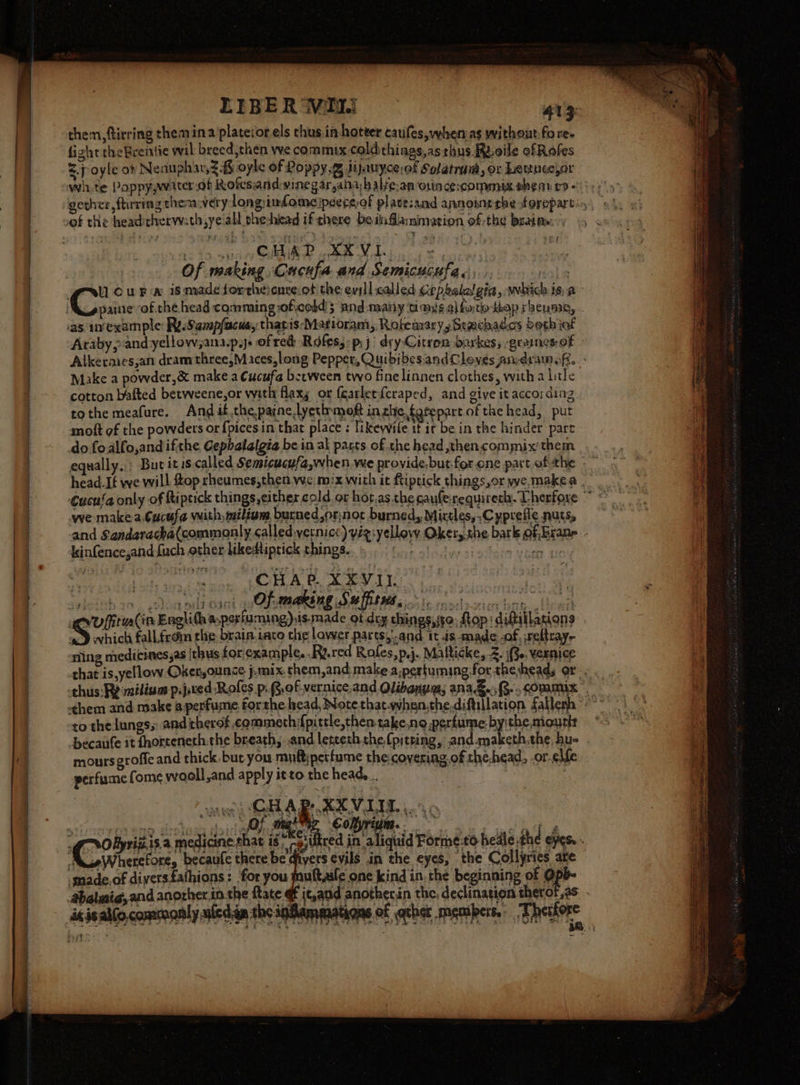 LIBER VVII. 413
them, stirring them in a plate: or els thus in hotter causes, when as without fore-
sight the Frensie wil breed, then we commix cold things, as thus. ℞. oile of Roses
℥.j oyle of Nenuphar, ℥.ß oyle of Poppy, ℥ iij. iuyce of Solatrum, or Lettuce, or
white Poppy, water of Roses and vinegar, ana, halfe an ounce: commix them to-
gether, stirring them very long in some peece of plate: and annoint the forepart
of the head therwith, ye all the head if there be inflammation of the braine.
CHAP. XXVI.
Of making Cucufa and Semicucufa.
CUcufa is made for the cure of the evill called Cephalalgia, which is a
paine of the head comming of cold; and many times also to stop rheume,
as in example: ℞. Sampsucus, that is Matioram, Rosemary, Stæchados both of
Araby, and yellow, ana. p.j. of red Roses, p j dry Citron barkes, graines of
Alkermes, an dram three, Maces, long Pepper, Quibibes and Cloves an. dram.ß.
Make a powder, & make a Cucufa between two fine linnen clothes, with a litle
cotton basted betweene, or with flax, or scarlet scraped, and give it according
to the measure. And if the paine lyeth most in the forepart of the head, put
most of the powders or spices in that place: likewise if it be in the hinder part
do so also, and if the Cephalalgia be in al parts of the head, then commix them
equally. But it is called Semicucufa, when we provide but for one part of the
head. If we will stop rheumes, then we mix with it stiptick things, or we make a
Cucufa only of stiptick things, either cold or hot, as the cause requireth. Therfore
we make a Cucufa with milium burned, or not burned, Mirtles, Cypresse nuts,
and Sandaracha (commonly called vernice) viz: yellow Oker, the bark of, Frane
kinsence, and such other like stiptick things.
CHAP. XXVII.
Of making Suffitus.
SUffitus (in English a perfuming) is made of dry things, to stop distillations
which fall from the brain into the lower parts, and it is made of restray-
ning medicines, as thus for example. ℞. red Roses, p.j. Masticke, ℥. jß. vernice
that is, yellow Oker, ounce j. mix them, and make a perfuming for the head, or
thus: ℞ milium p.j. red Roses p. ß, of vernice and Olibanum, ana, ℥. ß. commix
them and make a perfume for the head. Note that when the distillation falleth
to the lungs, and therof commeth spittle, then take no perfume by the mouth
because it shorteneth the breath, and letteth the spitting, and maketh the hu-
mours grosse and thick. but you must perfume the covering of the head, or else
perfume some wooll, and apply it to the head.
CHAP. XXVIII.
Of Collyrium.
COllyriũ is a medicine that is in a liquid Forme to heale the eyes.
Wherefore, because there be divers evils in the eyes, the Collyries are
made of divers fashions: for you must use one kind in the beginning of Oph-
thalmia, and another in the state of it, and another in the declination therof, as
it is also commonly used in the inflammations of other members. Therfore
in